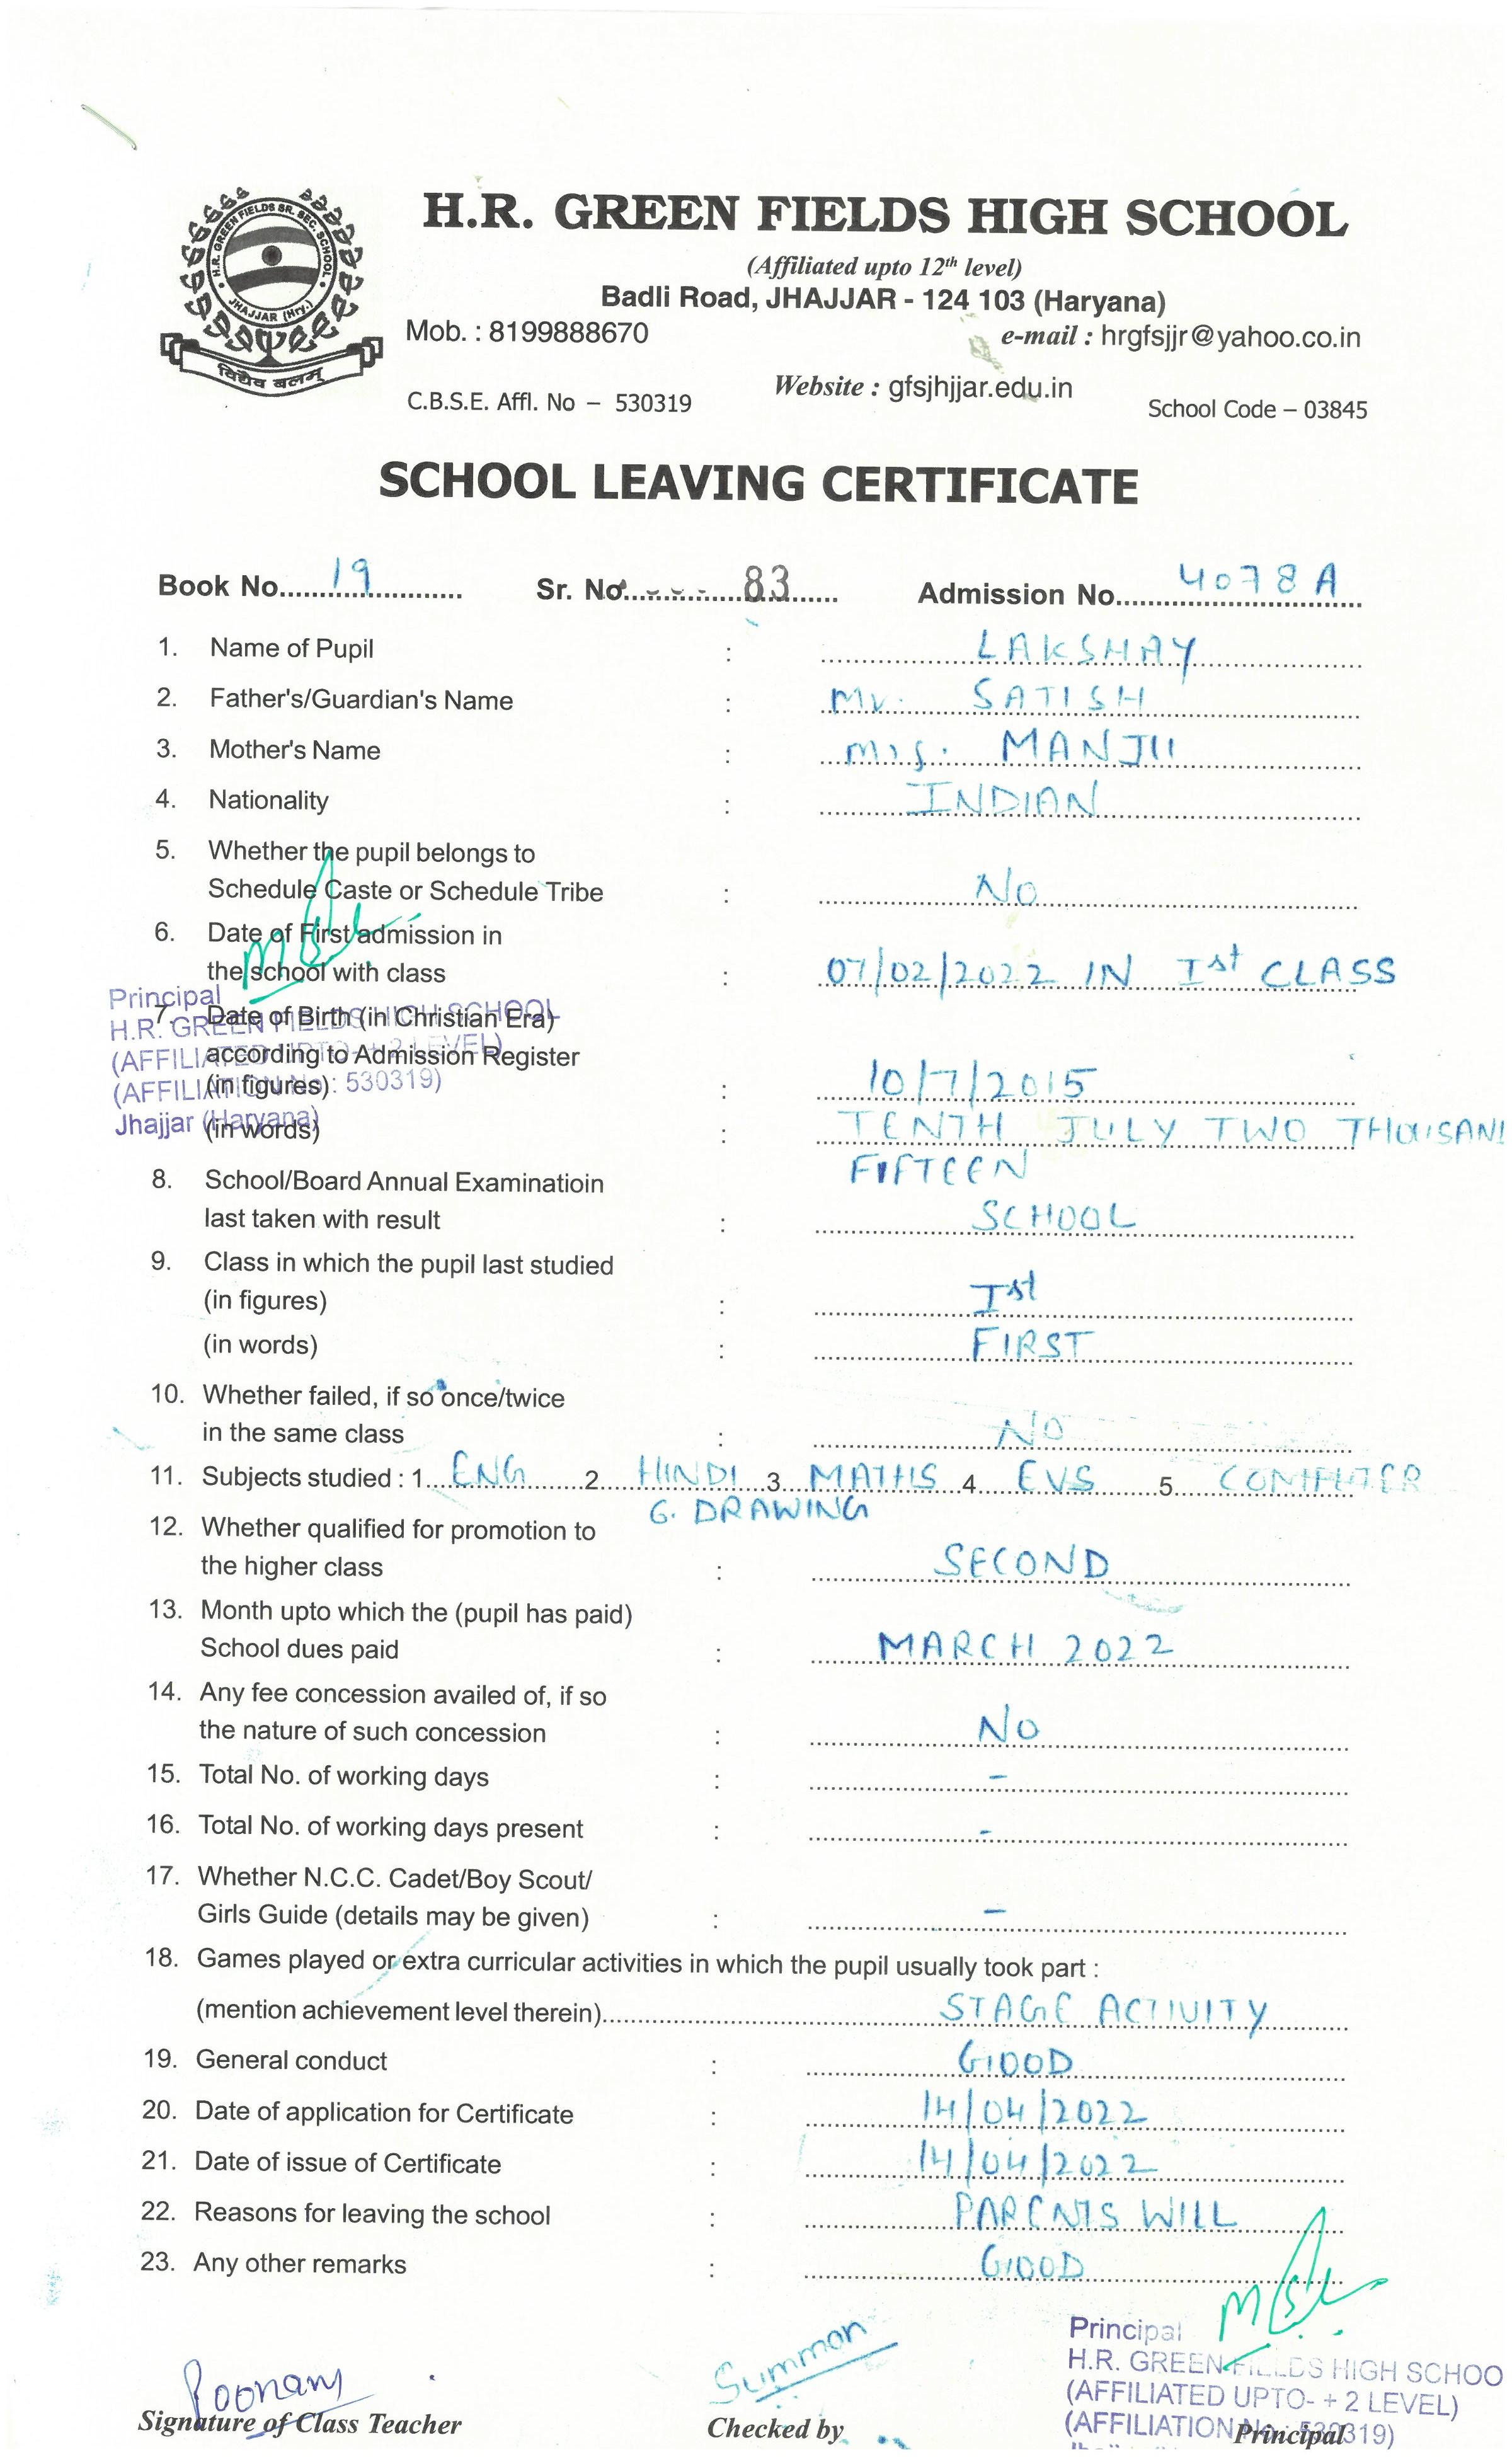 H.R. GREEN FIELDS SR. SEC. SCHOOL
JHAJJAR (Hry.)
विद्यैव बलम्
H.R. GREEN FIELDS HIGH SCHOOL
(Affiliated upto 12th level)
Badli Road, JHAJJAR - 124 103 (Haryana)
Mob. : 8199888670 e-mail : hrgfsjjr@yahoo.co.in
Website : gfsjhjjar.edu.in
C.B.S.E. Affl. No – 530319 School Code – 03845
SCHOOL LEAVING CERTIFICATE
Book No. 19 Sr. No. 83 Admission No. 4078 A
1. Name of Pupil : LAKSHAY
2. Father's/Guardian's Name : Mr. SATISH
3. Mother's Name : Mrs. MANJU
4. Nationality : INDIAN
5. Whether the pupil belongs to
Schedule Caste or Schedule Tribe : No
6. Date of First admission in
the school with class : 07/02/2022 IN Ist CLASS
Principal
H.R. GREEN FIELDS HIGH SCHOOL
(AFFILIATED UPTO- + 2 LEVEL)
(AFFILIATION No.: 530319)
Jhajjar (Haryana)
7. Date of Birth (in Christian Era)
according to Admission Register
(in figures) : 10/7/2015
(in words) : TENTH JULY TWO THOUSAND
FIFTEEN
8. School/Board Annual Examinatioin
last taken with result : SCHOOL
9. Class in which the pupil last studied
(in figures) : Ist
(in words) : FIRST
10. Whether failed, if so once/twice
in the same class : NO
11. Subjects studied : 1. ENG 2. HINDI 3. MATHS 4. EVS 5. COMPUTER
6. DRAWING
12. Whether qualified for promotion to
the higher class : SECOND
13. Month upto which the (pupil has paid)
School dues paid : MARCH 2022
14. Any fee concession availed of, if so
the nature of such concession : No
15. Total No. of working days : -
16. Total No. of working days present : -
17. Whether N.C.C. Cadet/Boy Scout/
Girls Guide (details may be given) : -
18. Games played or extra curricular activities in which the pupil usually took part :
(mention achievement level therein) STAGE ACTIVITY
19. General conduct : GOOD
20. Date of application for Certificate : 14/04/2022
21. Date of issue of Certificate : 14/04/2022
22. Reasons for leaving the school : PARENTS WILL
23. Any other remarks : GOOD
Principal
H.R. GREEN FIELDS HIGH SCHOO
(AFFILIATED UPTO- + 2 LEVEL)
(AFFILIATION No.: 530319)
Poonam Summan
Signature of Class Teacher Checked by Principal